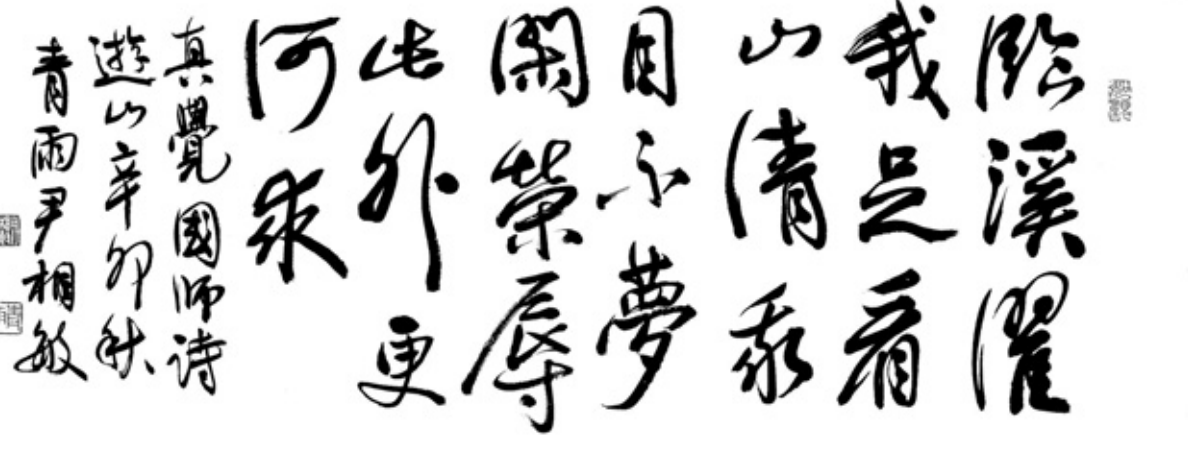 臨溪濯
我足看
山清我
目不夢
閑榮辱
此外更
何求
真覺國師詩
遊山辛卯秋
青雨尹相敏